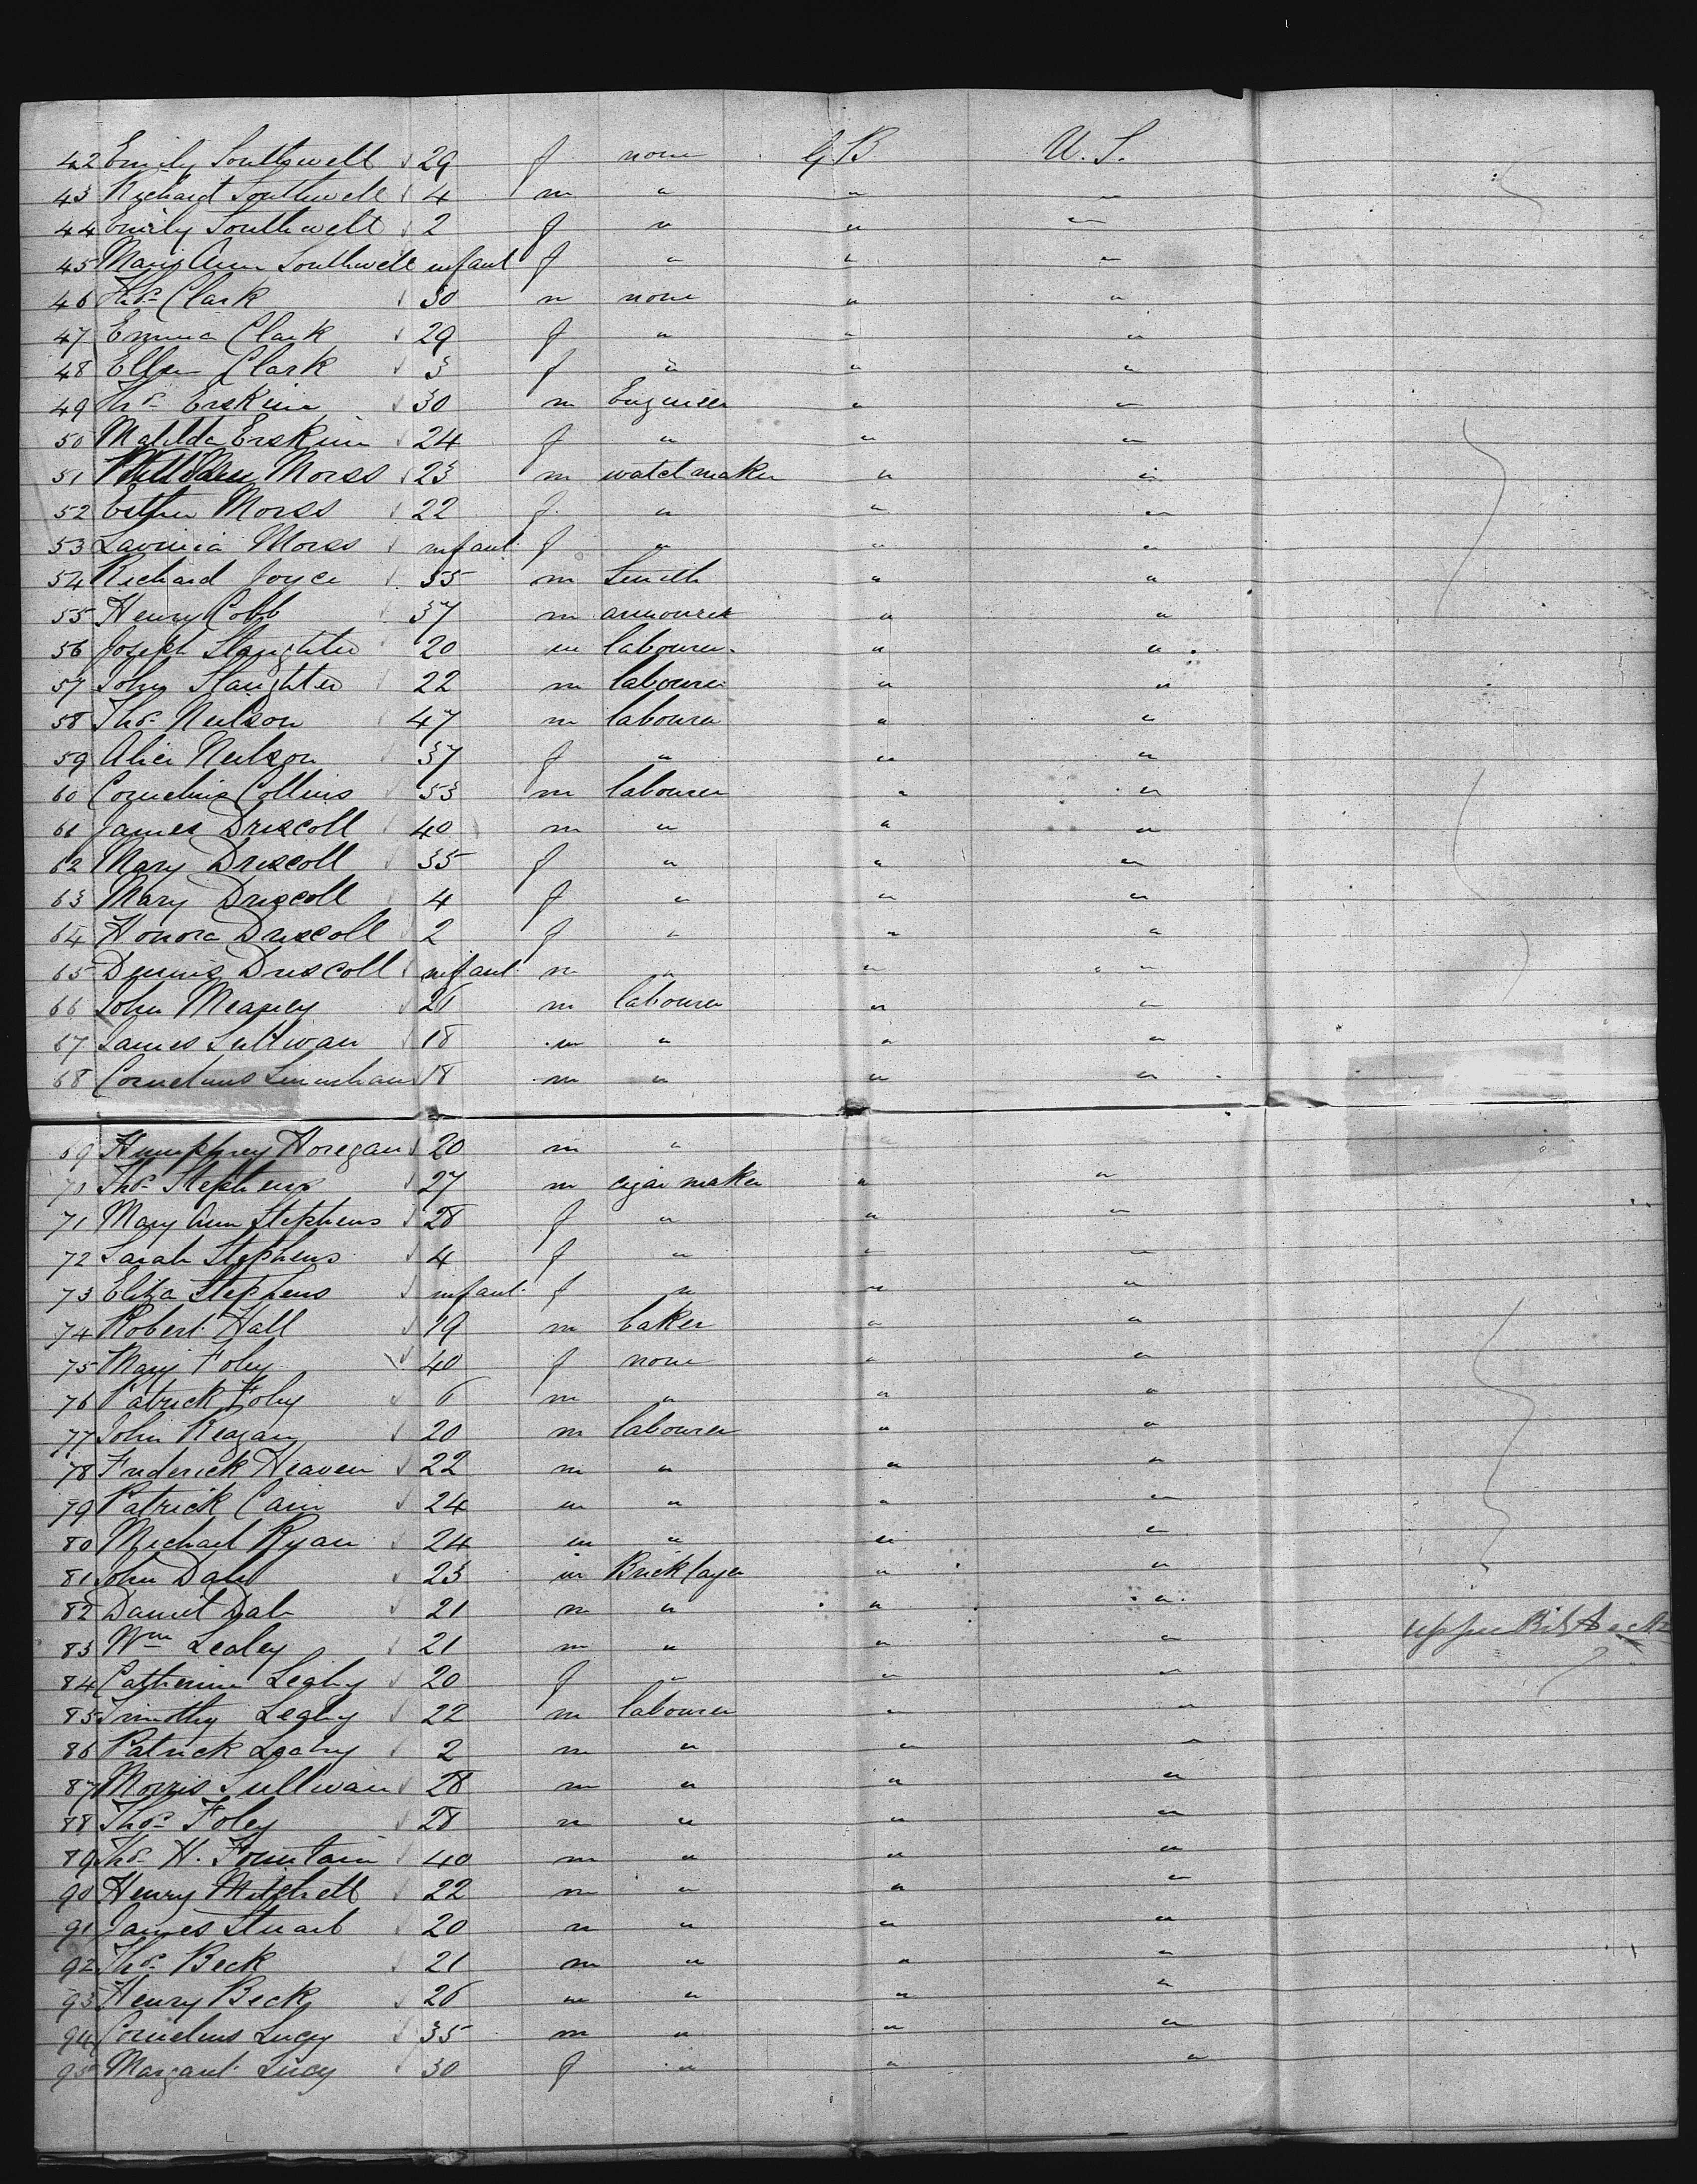 42 Emily Southwell 29 f none G B U. S.
43 Richard Southwell 4 m " " "
44 Emily Southwell 2 f " " "
45 Mary Ann Southwell infant f " " "
46 Thos Clark 30 m none " "
47 Emma Clark 29 f " " "
48 Ellen Clark 3 f " " "
49 Thos Erskine 30 m Engineer " "
50 Matilda Erskine 24 f " " "
51 William Morss 23 m watchmaker " "
52 Esther Morss 22 f " " "
53 Lavinia Morss infant f " " "
54 Richard Joyce 55 m Smith " "
55 Henry Cobb 37 m armourer " "
56 Joseph Slaughter 20 m labourer " "
57 John Slaughter 22 m labourer " "
58 Thos Neilson 47 m labourer " "
59 Alice Neilson 37 f " " "
60 Cornelius Collins 53 m labourer " "
61 James Driscoll 40 m " " "
62 Mary Driscoll 35 f " " "
63 Mary Driscoll 4 f " " "
64 Honora Driscoll 2 f " " "
65 Dennis Driscoll infant m " " "
66 John 26 m labourer " "
67 James Sullivan 18 m " " "
68 Cornelius 18 m " " "
69 Humphrey Horegan 20 m "
70 Thos Stephens 27 m cigar maker " "
71 Mary Ann Stephens 28 f " " "
72 Sarah Stephens 4 f " " "
73 Eliza Stephens infant f " " "
74 Robert Hall 19 m baker " "
75 Mary Foley 40 f none " "
76 Patrick Foley 6 m " " "
77 John Reagan 20 m labourer " "
78 Frederick Heaven 22 m " " "
79 Patrick Cain 24 m " " "
80 Michael Ryan 24 m " " "
81 John Daly 23 m Bricklayer " "
82 Daniel Daly 21 m " " "
83 Wm Leahy 21 m " " " upper
84 Catherine Leahy 20 f " " "
85 Timothy Leahy 22 m labourer " "
86 Patrick Leahy 2 m " " "
87 Morris Sullivan 28 m " " "
88 Thos Foley 28 m " " "
89 Thos H. Fountain 40 m " " "
90 Henry Mitchell 22 m " " "
91 James Stuart 20 m " " "
92 Thos Beck 21 m " " "
93 Henry Beck 26 m " " "
94 Cornelius Lucy 35 m " " "
95 Margaret Lucy 30 f " " "